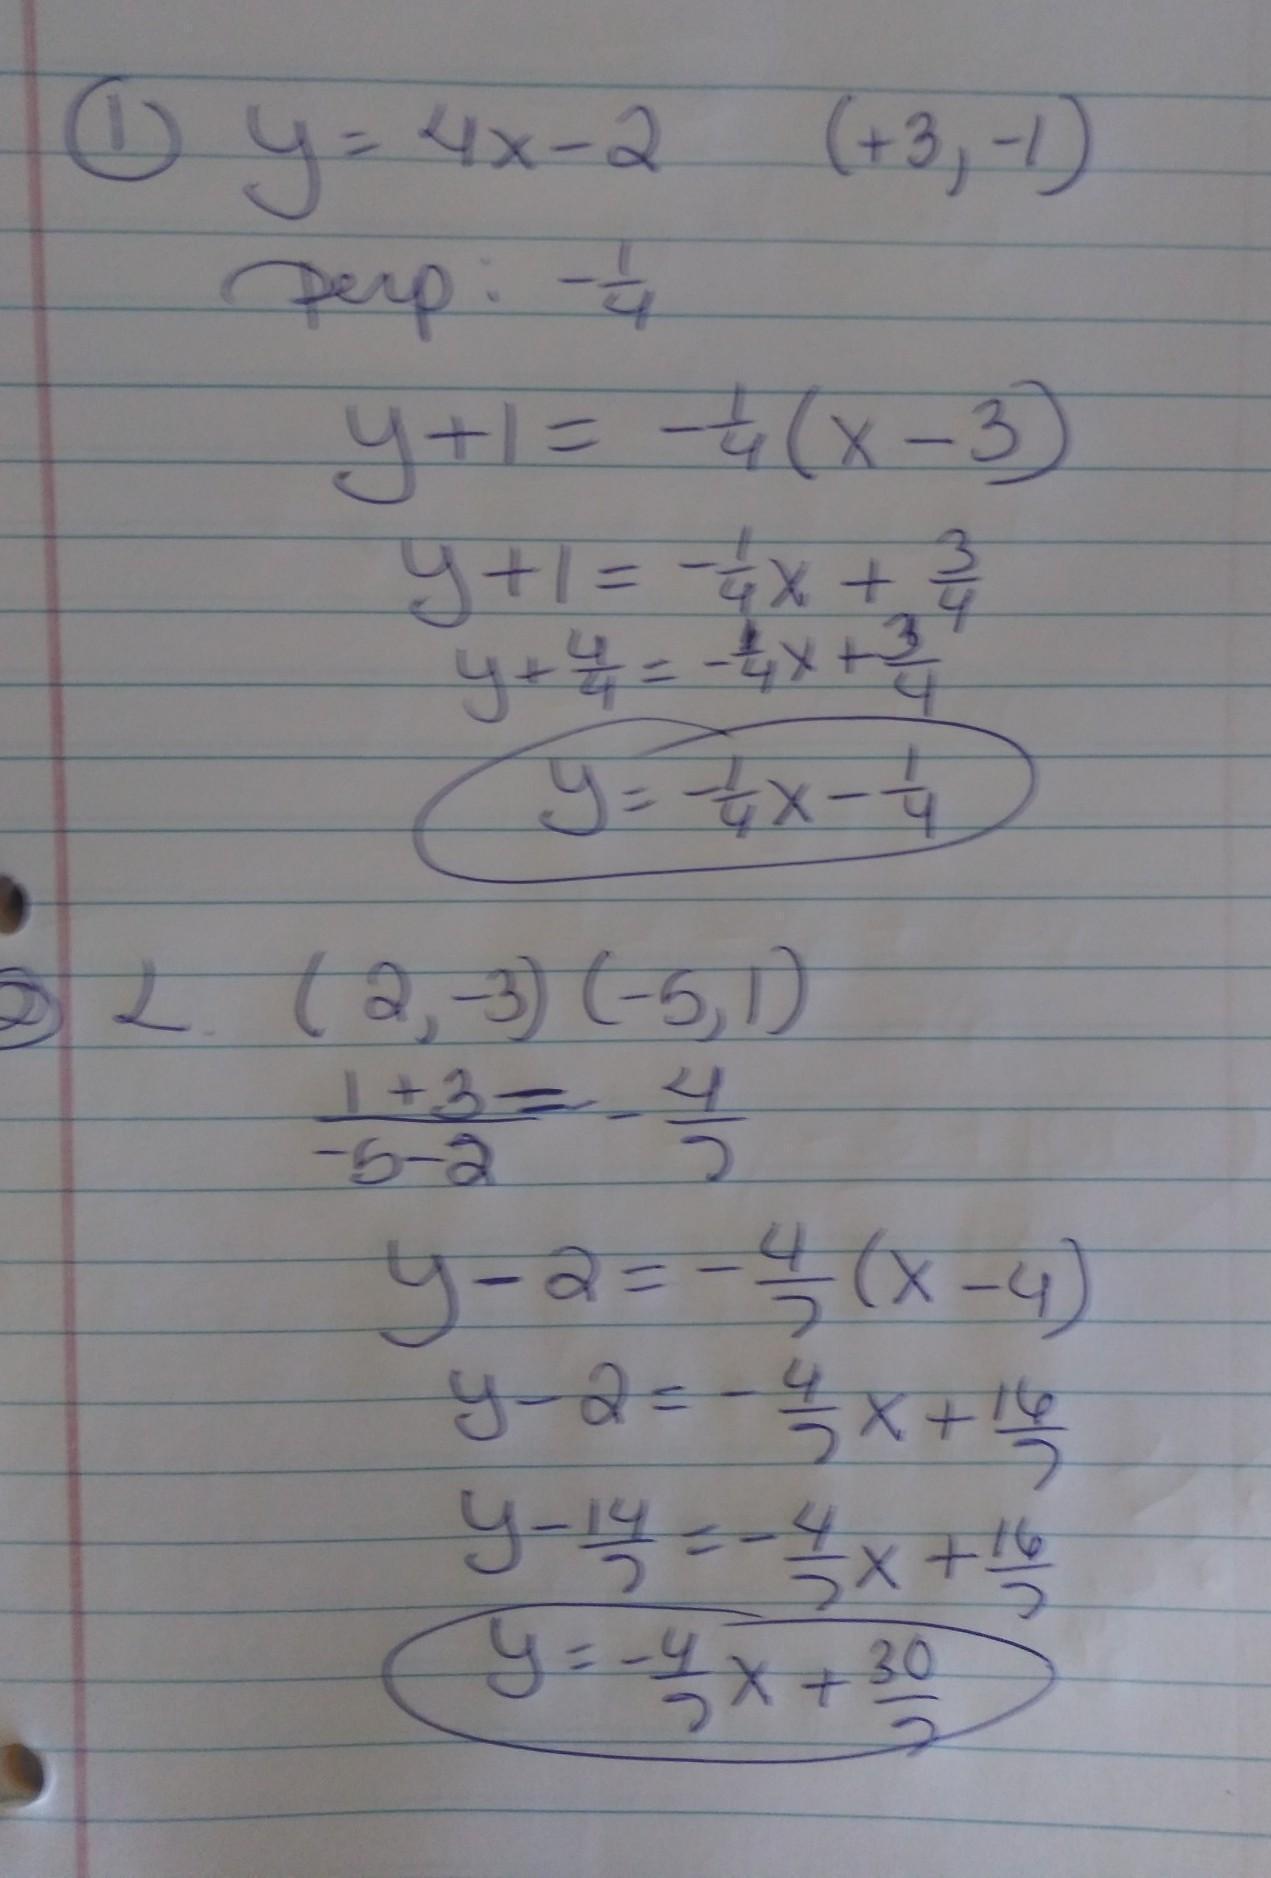 ① y = 4x - 2 (+3, -1)
perp: -1/4
y + 1 = -1/4 (x - 3)
y + 1 = -1/4 x + 3/4
y + 4/4 = -1/4 x + 3/4
y = -1/4 x - 1/4
② L. (2, -3) (-5, 1)
1 + 3 / -5 - 2 = - 4/7
y - 2 = - 4/7 (x - 4)
y - 2 = - 4/7 x + 16/7
y - 14/7 = - 4/7 x + 16/7
y = - 4/7 x + 30/7